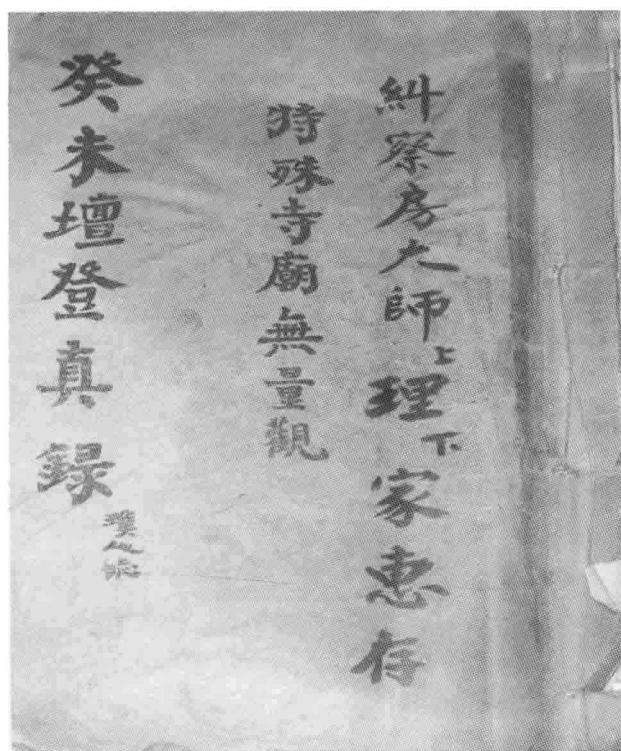 糾察房大師上理下家惠存
特殊寺廟無量觀
癸未壇登真錄